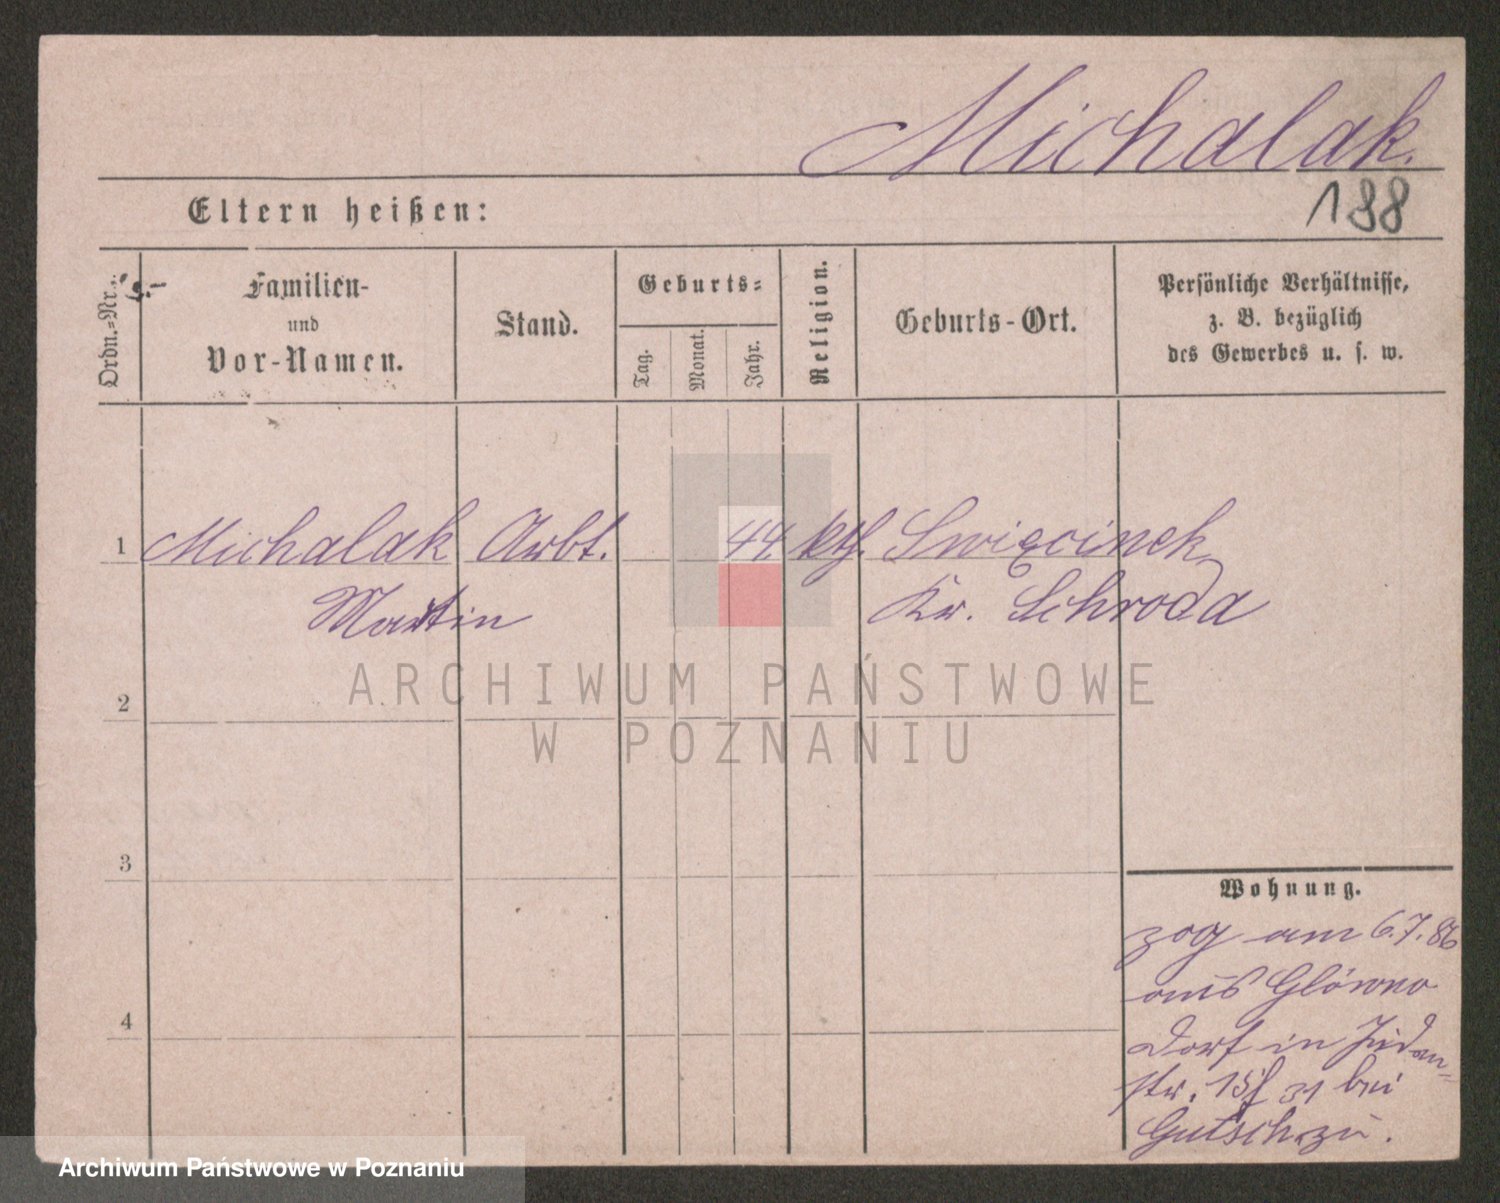 Michalak.
188
Eltern heißen:
Ordn.-Nr.
Familien-
und
Vor-Namen.
Stand.
Geburts-
Tag.
Monat.
Jahr.
Religion.
Geburts-Ort.
Persönliche Verhältnisse,
z. B. bezüglich
des Gewerbes u. s. w.
1 Michalak Arbt. 44. kth. Swięcinek
Martin Kr. Schroda
ARCHIWUM PAŃSTWOWE
W POZNANIU
2
3
4
Wohnung.
zog am 6.7.86
aus Główno
Dorf in Juden-
str. 15/31 bei
zu.
Archiwum Państwowe w Poznaniu